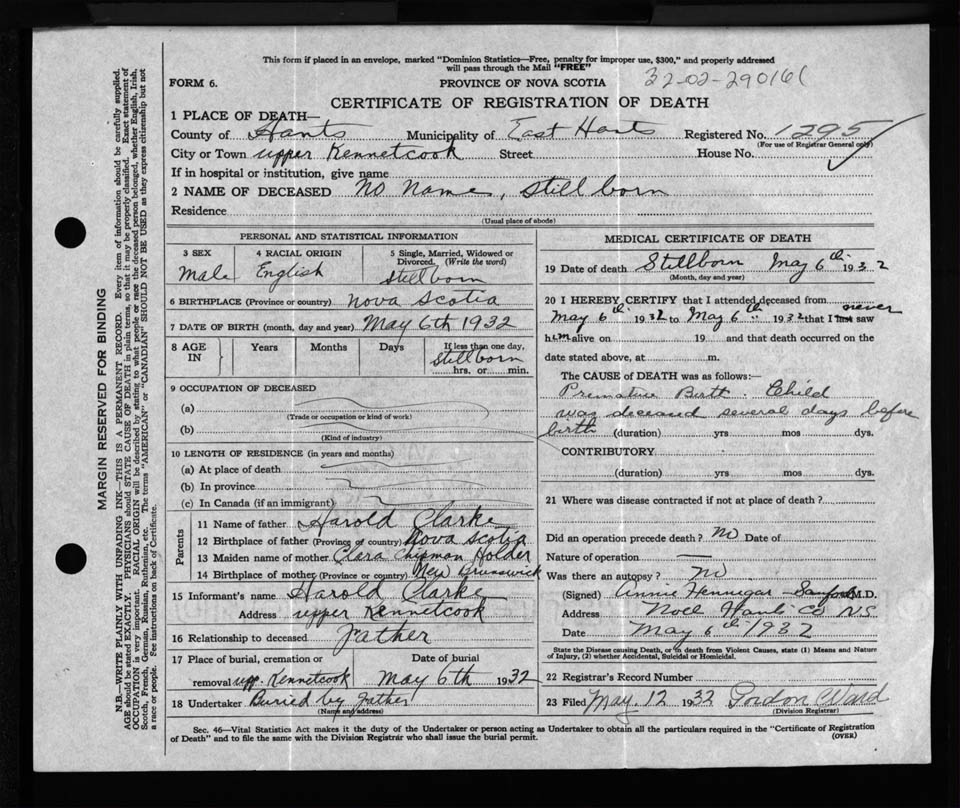 This form if placed in an envelope, marked "Dominion Statistics—Free, penalty for improper use, $300," and properly addressed
will pass through the Mail "FREE"
FORM 6.
PROVINCE OF NOVA SCOTIA
32-02-290161
CERTIFICATE OF REGISTRATION OF DEATH
1 PLACE OF DEATH—
County of Hants Municipality of East Hants Registered No. 1295
(For use of Registrar General only)
City or Town Upper Kennetcook Street House No.
If in hospital or institution, give name
2 NAME OF DECEASED No Name, Still born
Residence
(Usual place of abode)
PERSONAL AND STATISTICAL INFORMATION
3 SEX 4 RACIAL ORIGIN 5 Single, Married, Widowed or
Divorced. (Write the word)
Male English Stillborn
6 BIRTHPLACE (Province or country) Nova Scotia
7 DATE OF BIRTH (month, day and year) May 6th 1932
8 AGE IN Years Months Days If less than one day,
Stillborn
hrs. or min.
9 OCCUPATION OF DECEASED
(a)
(Trade or occupation or kind of work)
(b)
(Kind of industry)
10 LENGTH OF RESIDENCE (in years and months)
(a) At place of death
(b) In province
(c) In Canada (if an immigrant)
Parents
11 Name of father Harold Clarke
12 Birthplace of father (Province or country) Nova Scotia
13 Maiden name of mother Clara Chipman Holder
14 Birthplace of mother (Province or country) New Brunswick
15 Informant's name Harold Clarke
Address Upper Kennetcook
16 Relationship to deceased Father
17 Place of burial, cremation or Date of burial
removal Upp. Kennetcook May 6th 1932
18 Undertaker Buried by Father
(Name and address)
MEDICAL CERTIFICATE OF DEATH
19 Date of death Stillborn May 6th 1932
(Month, day and year)
20 I HEREBY CERTIFY that I attended deceased from
May 6th 1932 to May 6th 1932 that I last never saw
him alive on 19 and that death occurred on the
date stated above, at m.
The CAUSE of DEATH was as follows:—
Premature Birth. Child
was deceased several days before
birth (duration) yrs mos dys.
CONTRIBUTORY
(duration) yrs mos dys.
21 Where was disease contracted if not at place of death?
Did an operation precede death? No Date of
Nature of operation —
Was there an autopsy? No
(Signed) Annie Hennigar Sanford M.D.
Address Noel Hants Co N.S.
Date May 6th 1932
State the Disease causing Death, or in death from Violent Causes, state (1) Means and Nature
of Injury, (2) whether Accidental, Suicidal or Homicidal.
22 Registrar's Record Number
23 Filed May 12 1932 Gordon Ward
(Division Registrar)
Sec. 46—Vital Statistics Act makes it the duty of the Undertaker or person acting as Undertaker to obtain all the particulars required in the "Certificate of Registration
of Death" and to file the same with the Division Registrar who shall issue the burial permit.
(OVER)
MARGIN RESERVED FOR BINDING
N.B.—WRITE PLAINLY WITH UNFADING INK—THIS IS A PERMANENT RECORD. Every item of information should be carefully supplied.
AGE should be stated EXACTLY. PHYSICIANS should STATE CAUSE OF DEATH in plain terms, so that it may be properly classified. Exact statement of
OCCUPATION is very important. RACIAL ORIGIN will be described by stating to what people or race the deceased person belonged, whether English, Irish,
Scotch, French, German, Russian, Ruthenian, etc. The terms "AMERICAN" or "CANADIAN" SHOULD NOT BE USED as they express citizenship but not
a race or people. See instructions on back of Certificate.